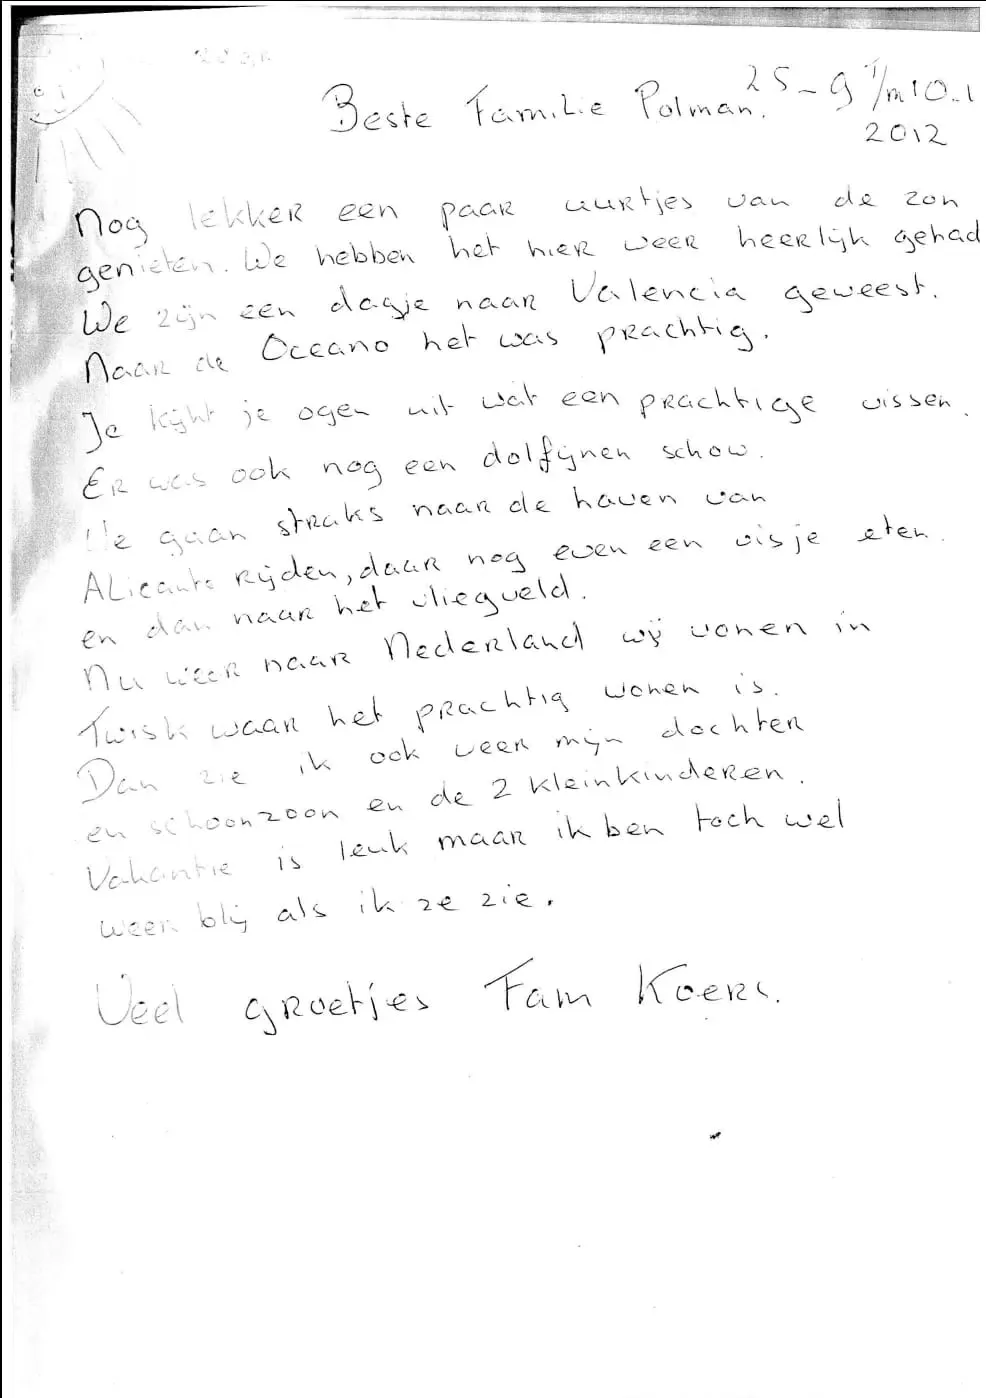 Beste Familie Polman. 25-9 t/m 10.1
2012
Nog lekker een paar uurtjes van de zon
genieten. We hebben het hier weer heerlijk gehad
We zijn een dagje naar Valencia geweest.
Naar de Oceano het was prachtig.
Je kijkt je ogen uit wat een prachtige vissen.
Er was ook nog een dolfijnen schow.
We gaan straks naar de haven van
Alicante rijden, daar nog even een visje eten.
en dan naar het vliegveld.
Nu weer naar Nederland wij wonen in
Twisk waar het prachtig wonen is.
Dan zie ik ook weer mijn dochter
en schoonzoon en de 2 kleinkinderen.
Vakantie is leuk maar ik ben toch wel
weer blij als ik ze zie.
Veel groetjes Fam